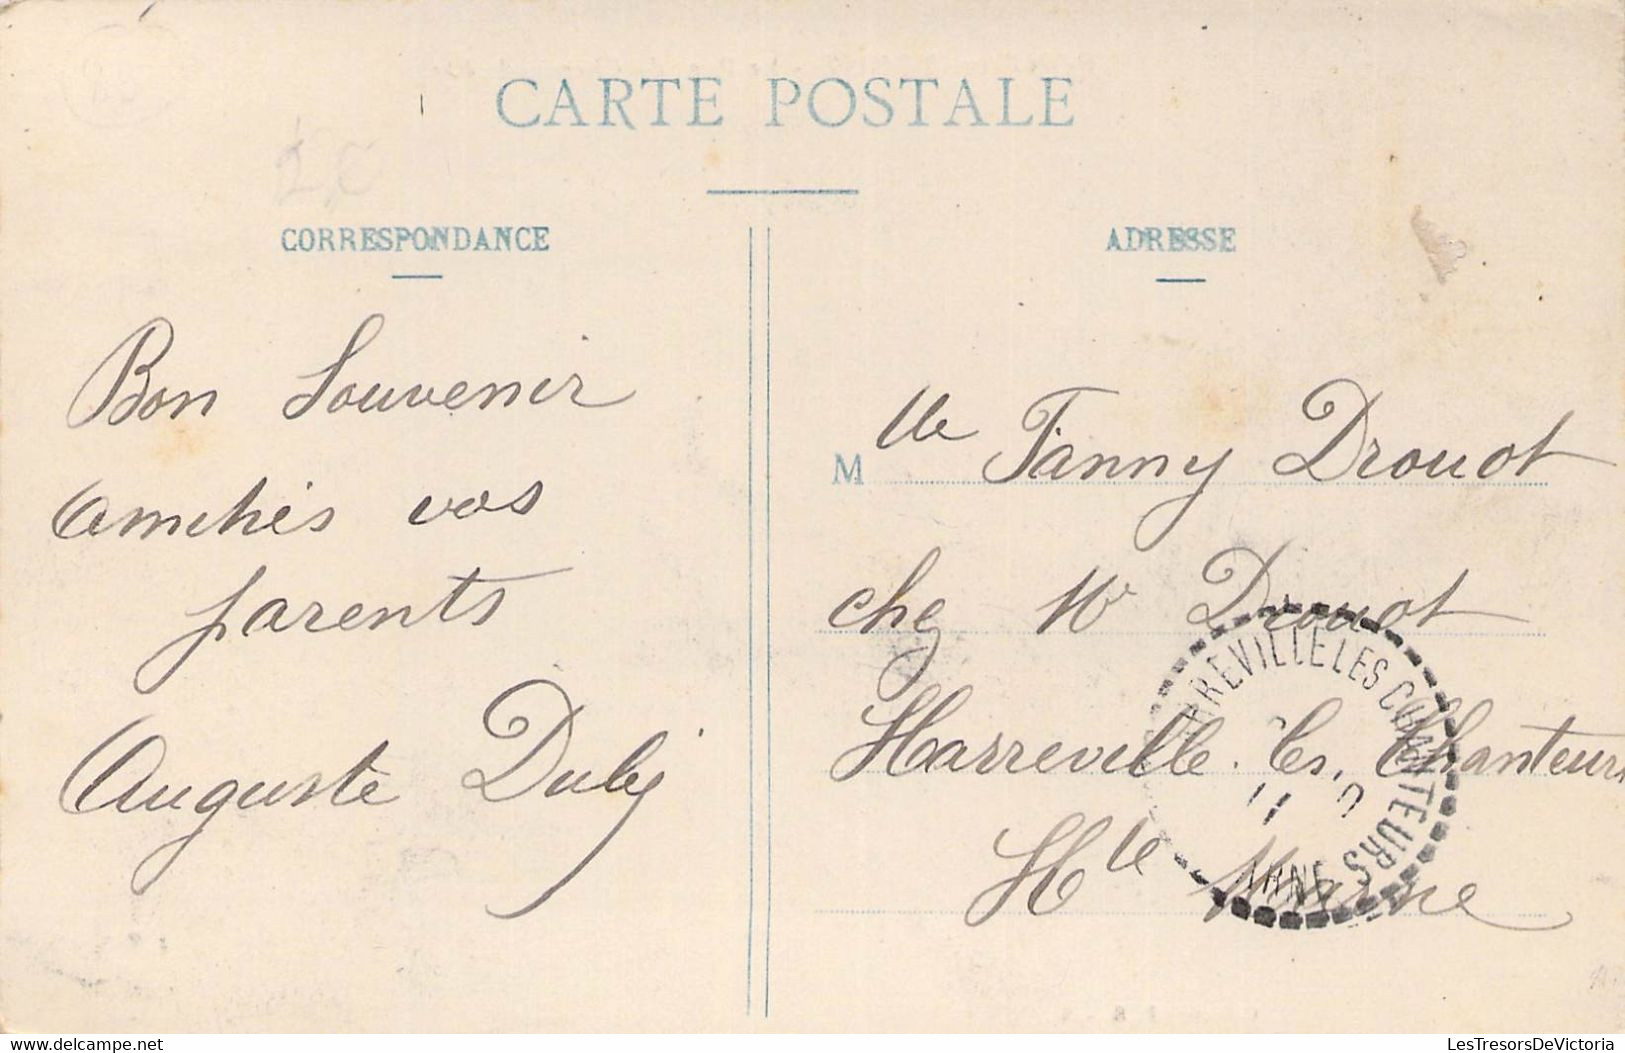 CARTE POSTALE
CORRESPONDANCE
Bon Souvenir
Amitiés vos
parents
Auguste
ADRESSE
Mlle Fanny Drouot
chez Mr Drouot
Harreville-les-Chanteurs
Hte Marne
RREVILLE LES CHANTEURS
ARNE
www.delcampe.net
LesTresorsDeVictoria